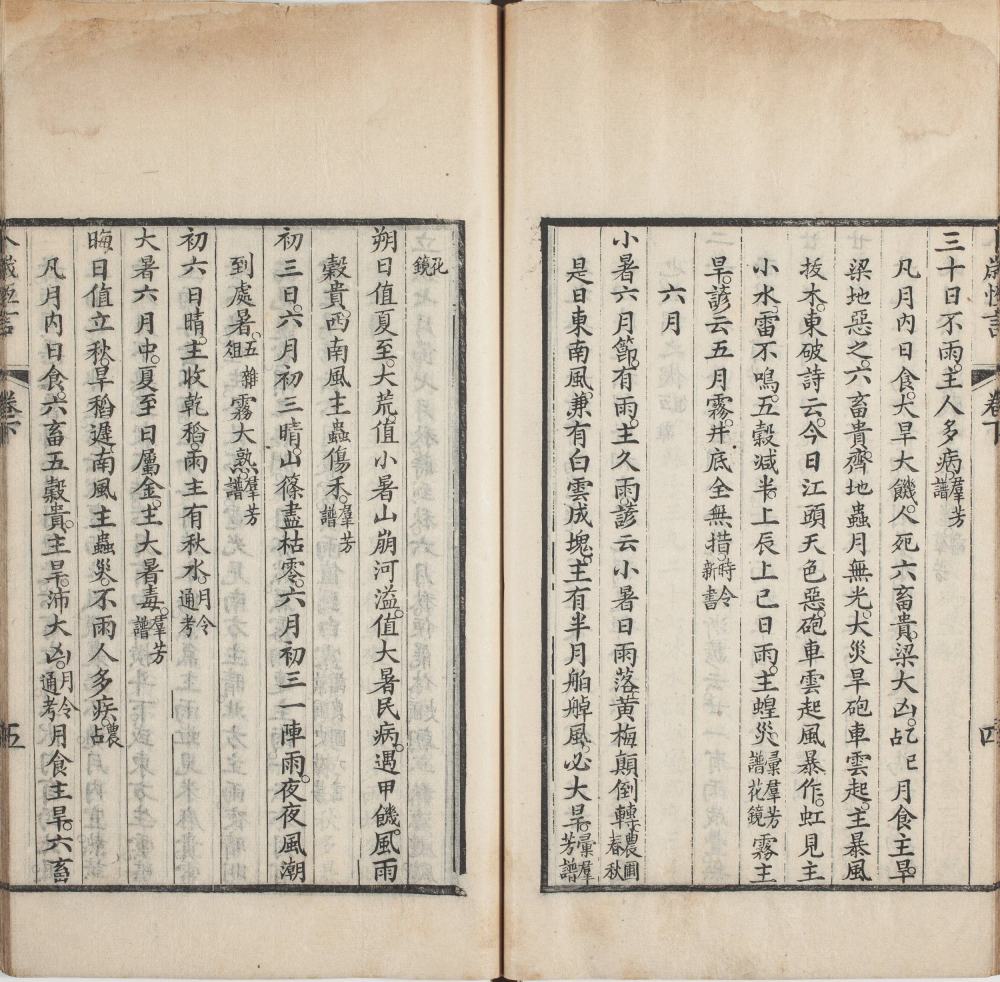 卷下
四
三十日不雨。主人多病。羣芳譜
凡月内日食。大旱大饑。人死六畜貴。梁大凶。乙巳占月食主旱。
梁地惡之。六畜貴。齊地蟲月無光。大災旱砲車雲起。主暴風
拔木。東破詩云。今日江頭天色惡。砲車雲起風暴作。虹見主
小水。雷不鳴。五穀減半。上辰上巳日雨。主蝗災。彙羣芳譜花鏡霧主
旱。諺云五月霧。井底全無措。時令新書
六月
小暑六月節。有雨。主久雨。諺云小暑日雨落。黄梅顛倒轉。農圃春秋
是日東南風。兼有白雲成塊。主有半月舶䑲風。必大旱。彙羣芳譜
孔鏡
朔日值夏至。大荒。值小暑山崩河溢。值大暑民病。遇甲饑。風雨
穀貴。西南風主蟲傷禾。羣芳譜
初三日。六月初三晴。山篠盡枯零。六月初三一陣雨。夜夜風潮
到處暑。五雜俎霧大熟。羣芳譜
初六日晴。主收乾稻。雨主有秋水。月令通考
大暑六月中。夏至日屬金。主大暑毒。羣芳譜
晦日值立秋。旱稻遲。南風主蟲災。不雨人多疾。農占
凡月内日食。六畜五穀貴。主旱。沛大凶。月令通考月食主旱。六畜
卷下
五